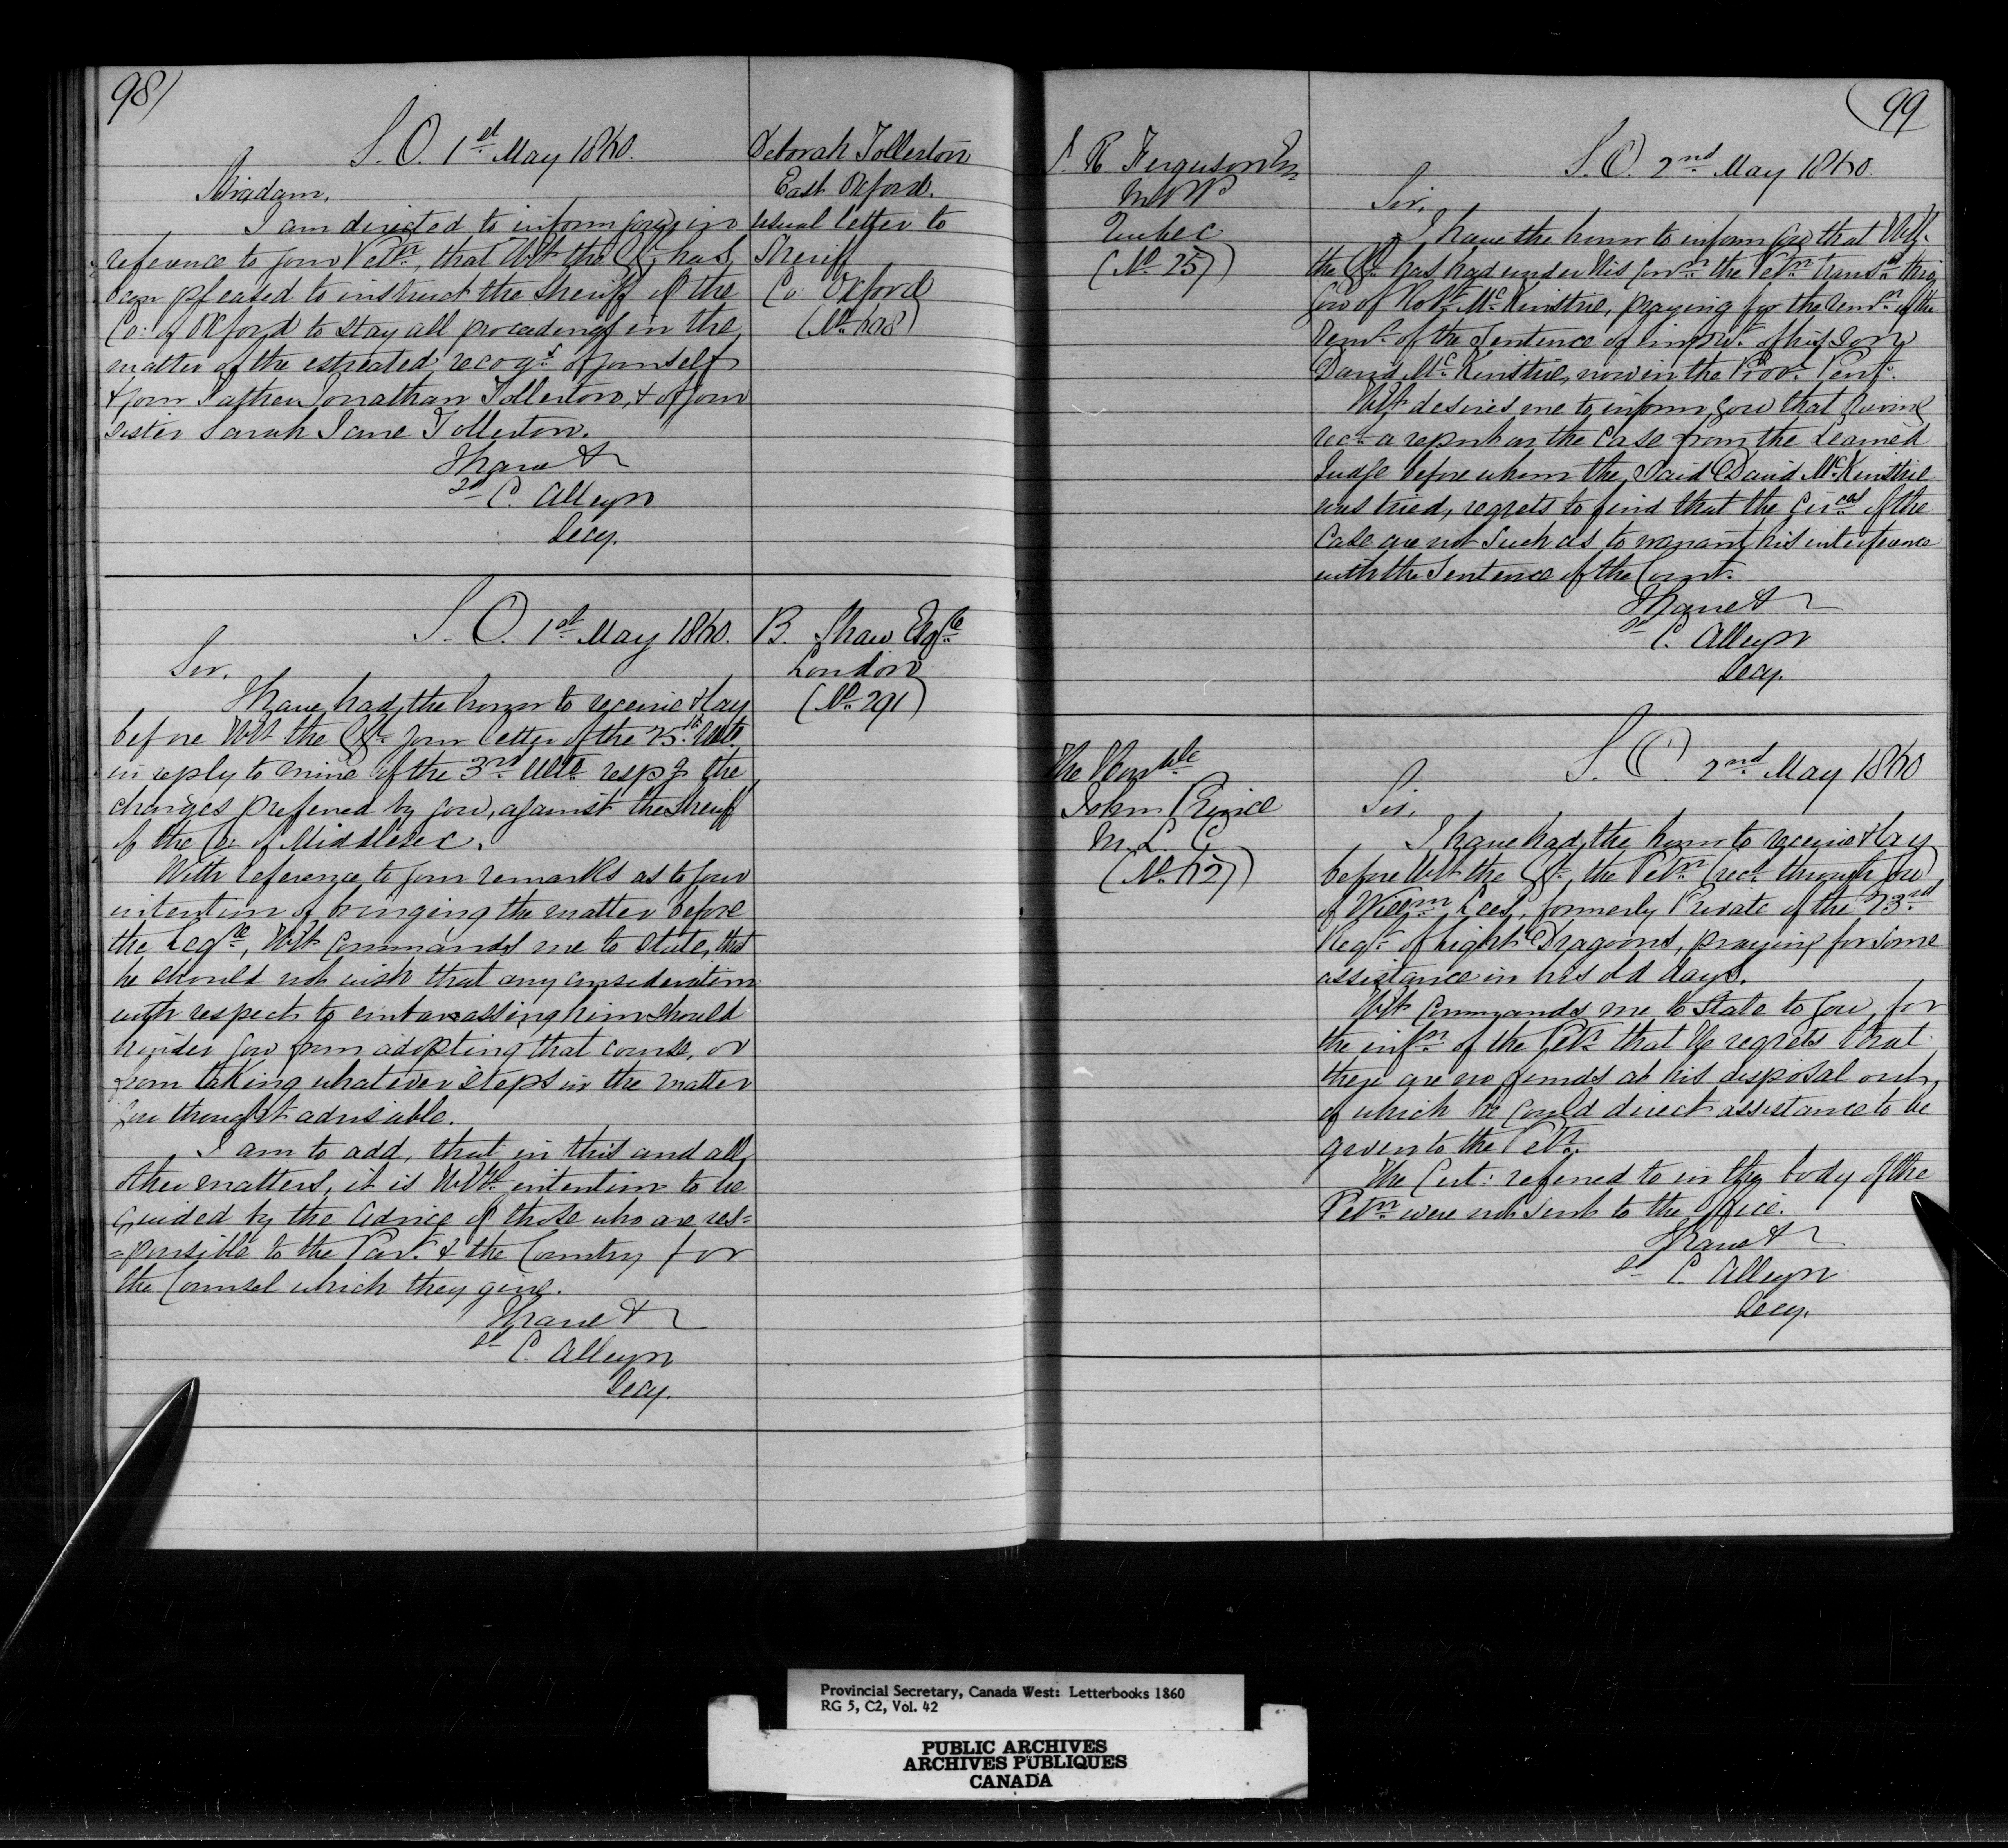 98)
S. O. 1st May 1860.
Madam,
I am directed to inform you, in
reference to your Petn, that H. E. the has
been pleased to instruct the Sheriff of the
Co: of Oxford to stay all proceedings in the
matter of the estreated recogs of yourself
& your Father Jonathan Tollerton, & of your
sister Sarah Jane Tollerton.
I have &
sd C. Alleyn
Secy.
Deborah Tollerton
East Oxford.
usual letter to
Sheriff
Co: Oxford
S. O. 1st May 1860.
Sir,
I have had the honor to receive & lay
before H. E. the your letter of the 25th Ulto
in reply to mine of the 3rd Ulto respg the
charges preferred by you, against the Sheriff
of the Co: of Middlesex.
With reference to your remarks as to your
intention of bringing the matter before
the Legre, H. E. Commands me to state, that
he should not wish that any consideration
with respect to embarassing him should
hinder you from adopting that course, or
from taking whatever steps in the matter
you thought advisable.
I am to add, that in this and all
other matters, it is H. E's intention to be
guided by the advice of those who are res=
=ponsible to the Parlt & the Country for
the Counsel which they give.
I have &
sd C. Alleyn
Secy.
B. Shaw Esqre
London
(No 291)
99
R. Ferguson Esq
M.P.P.
Quebec
(No 257)
S. O. 2nd May 1860.
Sir,
I have the honor to inform you that H. E.
the has had under His Conn the Petn transd thro
you of Robt McKinstrie, praying for the remn of the
remr of the Sentence of imprt of his Son
David McKinstrie, now in the Prov: Peny.
H. E. desires me to inform you that having
recd a report on the Case from the Learned
Judge before whom the Said David McKinstrie
was tried, regrets to find that the Circes of the
Case are not Such as to warrant his interference
with the Sentence of the Court.
I have &
sd C. Alleyn
Secy.
The Honble
John Prince
M. L. C.
S. O. 2nd May 1860
Sir,
I have had the honor to receive & lay
before H. E. the the Petn (recd through you)
of Willm Lees, formerly Private of the 23rd
Regt of Light Dragoons, praying for some
assistance in his old days.
H. E. Commands me to State to you, for
the infn of the Petr that He regrets that
there are no funds at his disposal out
of which he could direct assistance to be
given to the Petr.
The Cert: referred to in the body of the
Petn were not sent to the Office.
I have &
sd C. Alleyn
Secy.
Provincial Secretary, Canada West: Letterbooks 1860
RG 5, C2, Vol. 42
PUBLIC ARCHIVES
ARCHIVES PUBLIQUES
CANADA